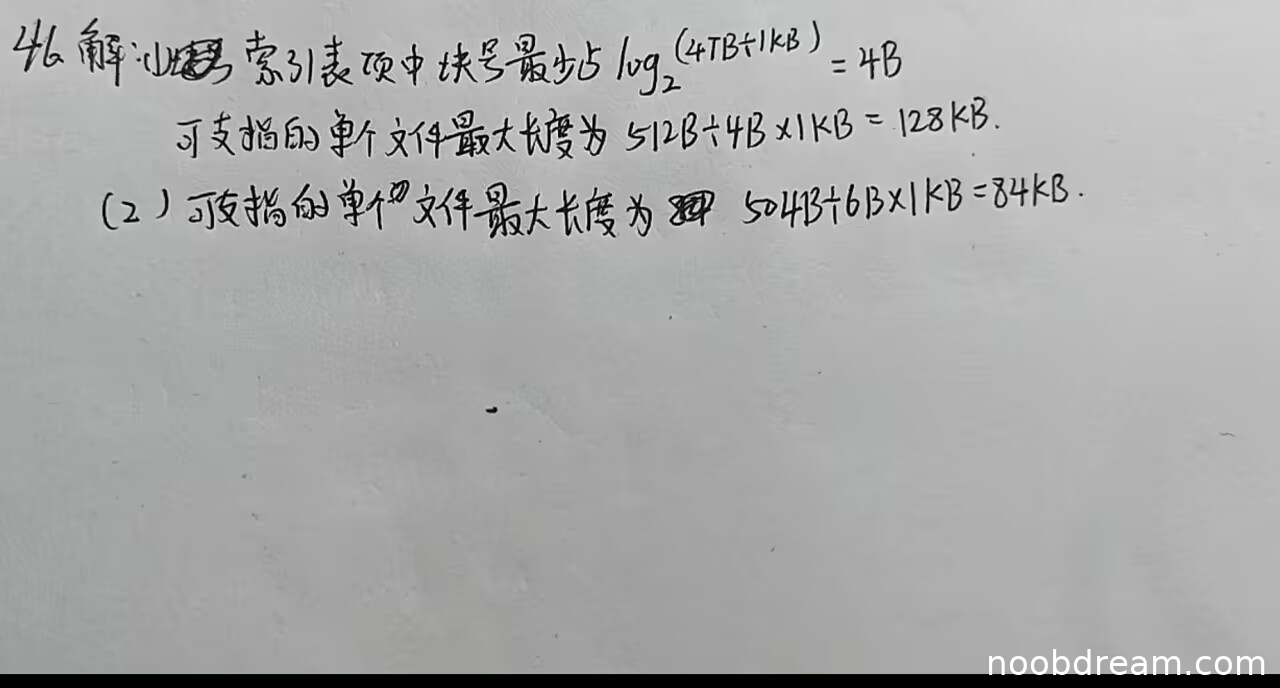 46 解:(1) 索引表项中块号最少占 log₂^(4TB÷1KB) = 4B
可支持的单个文件最大长度为 512B÷4B×1KB = 128KB.
(2) 可支持的单个文件最大长度为 504B÷6B×1KB=84KB.
noobdream.com